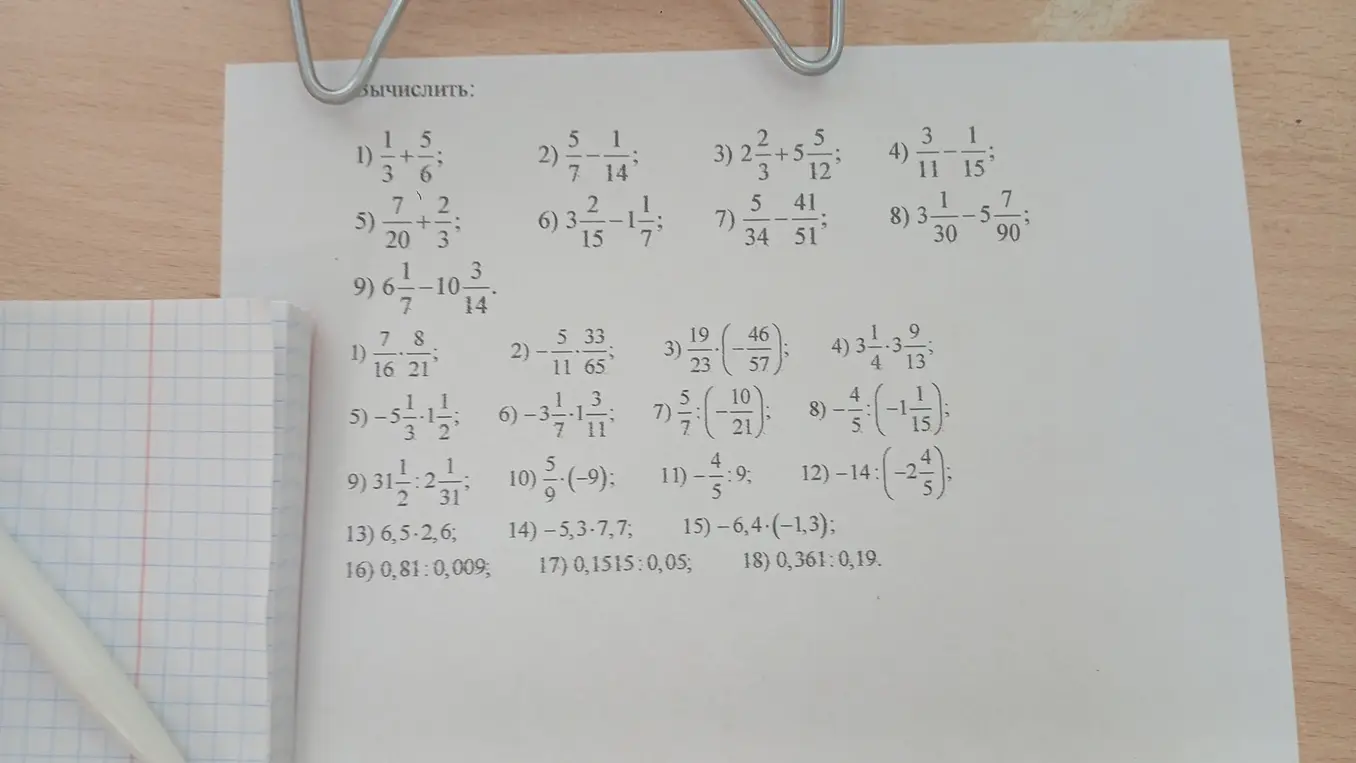 Вычислить:
1) 1/3 + 5/6; 2) 5/7 − 1/14; 3) 2 2/3 + 5 5/12; 4) 3/11 − 1/15;
5) 7/20 + 2/3; 6) 3 2/15 − 1 1/7; 7) 5/34 − 41/51; 8) 3 1/30 − 5 7/90;
9) 6 1/7 − 10 3/14.
1) 7/16 · 8/21; 2) − 5/11 · 33/65; 3) 19/23 · (− 46/57); 4) 3 1/4 · 3 9/13;
5) −5 1/3 · 1 1/2; 6) −3 1/7 · 1 3/11; 7) 5/7 : (− 10/21); 8) − 4/5 : (−1 1/15);
9) 31 1/2 : 2 1/31; 10) 5/9 · (−9); 11) − 4/5 : 9; 12) −14 : (−2 4/5);
13) 6,5 · 2,6; 14) −5,3 · 7,7; 15) −6,4 · (−1,3);
16) 0,81 : 0,009; 17) 0,1515 : 0,05; 18) 0,361 : 0,19.